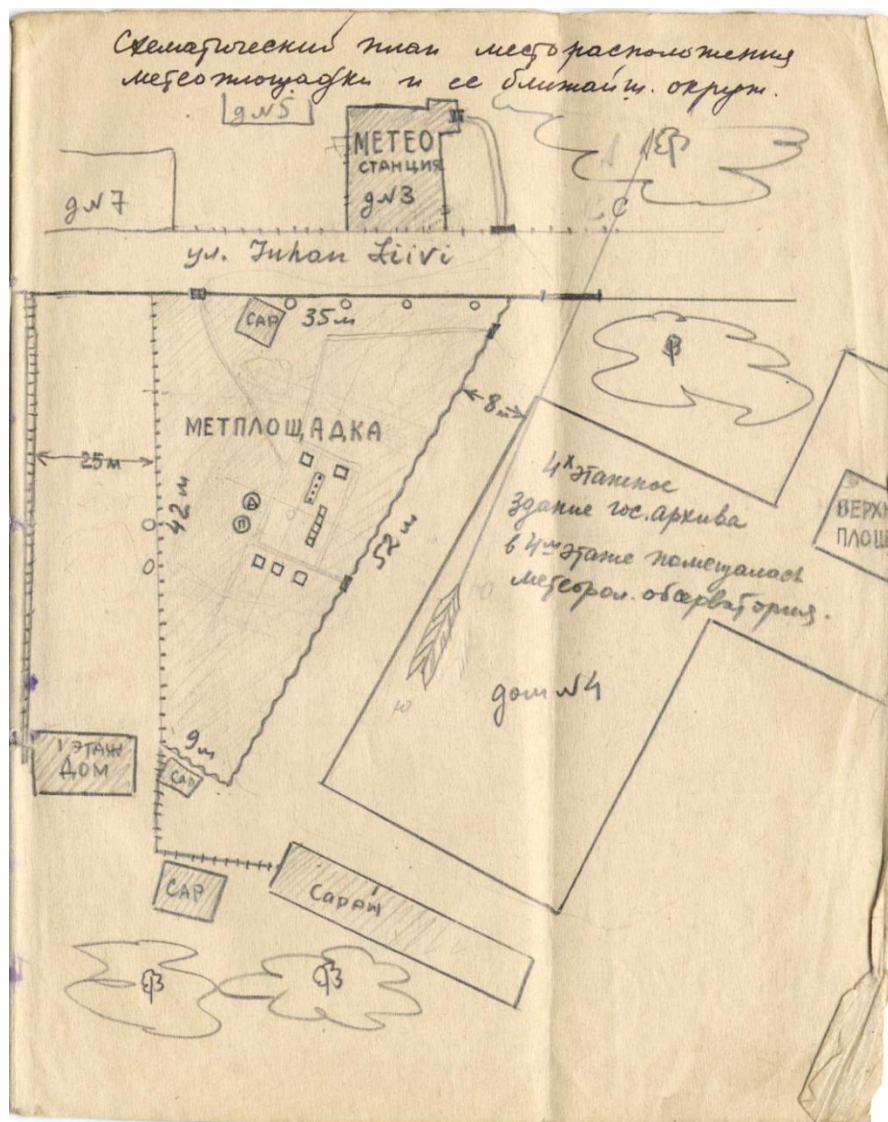 Схематический план месторасположения
метеоплощадки и ее ближайш. окруж.
д№5
МЕТЕО
СТАНЦИЯ
д№3
д№7
С
ул. Juhan Liivi
САР
35м
8м
МЕТПЛОЩАДКА
25м
42м
52м
4х этажное
здание гос. архива
в 4м этаже помещалась
метеорол. обсерватория.
ВЕРХН
ПЛОЩ
Д
П
Ю
дом №4
9м
1 ЭТАЖ
ДОМ
САР
САР
Сарай